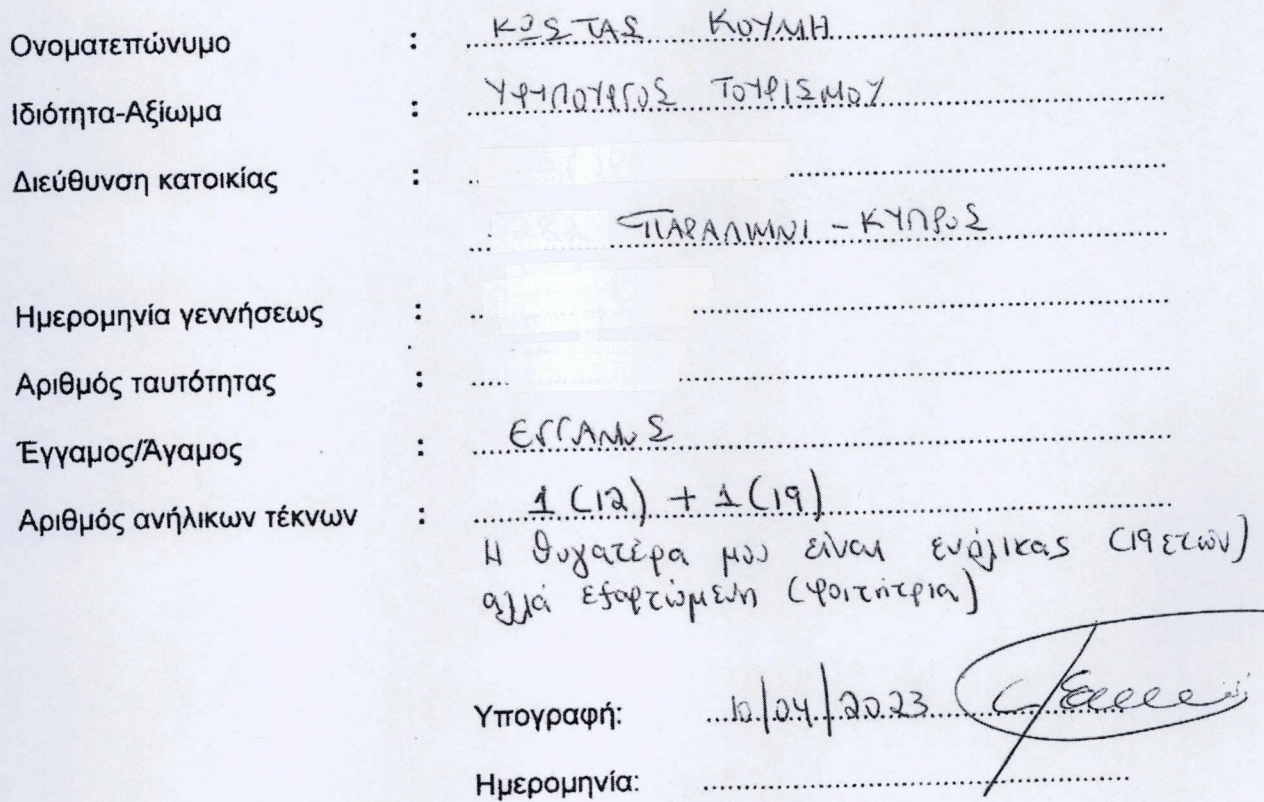 Ονοματεπώνυμο : ΚΩΣΤΑΣ ΚΟΥΜΗ
Ιδιότητα-Αξίωμα : ΥΦΥΠΟΥΡΓΟΣ ΤΟΥΡΙΣΜΟΥ
Διεύθυνση κατοικίας :
ΠΑΡΑΛΙΜΝΙ - ΚΥΠΡΟΣ
Ημερομηνία γεννήσεως :
Αριθμός ταυτότητας :
Έγγαμος/Άγαμος : ΕΓΓΑΜΟΣ
Αριθμός ανήλικων τέκνων : 1 (12) + 1 (19)
Η θυγατέρα μου είναι ενήλικας (19 ετών)
αλλά εξαρτώμενη (φοιτήτρια)
Υπογραφή: 10/04/2023
Ημερομηνία: